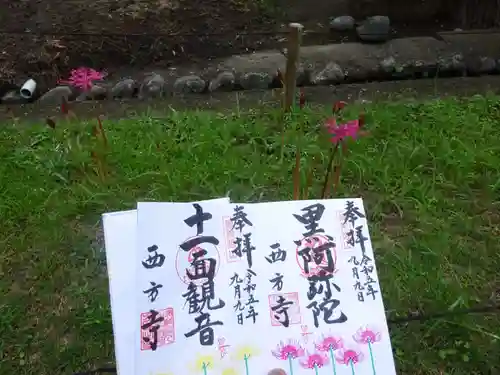 奉拝
黒阿弥陀
令和五年
九月九日
西方寺
奉拝
十一面観音
令和五年
九月九日
西方寺